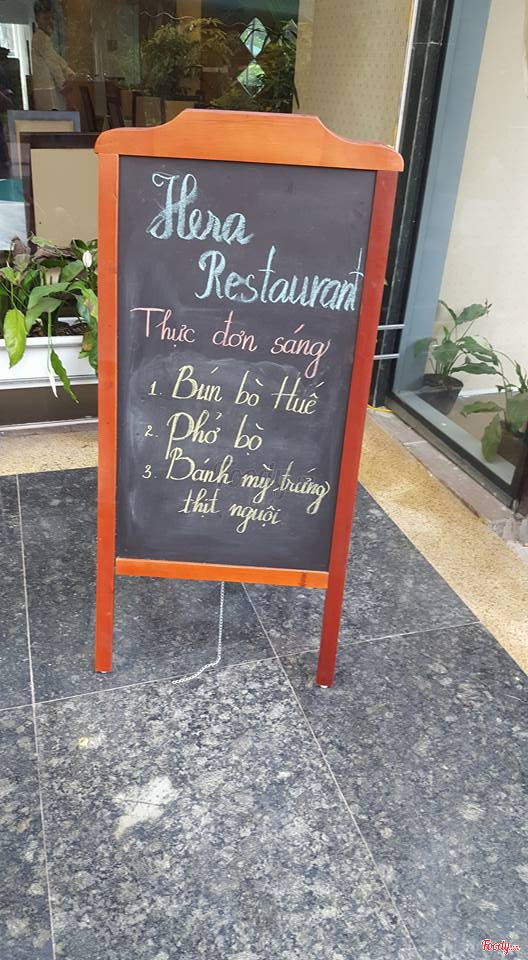 Hera
Restaurant
Thực đơn sáng
1. Bún bò Huế
2. Phở bò
3. Bánh mỳ, trứng
thịt nguội
Foody.vn